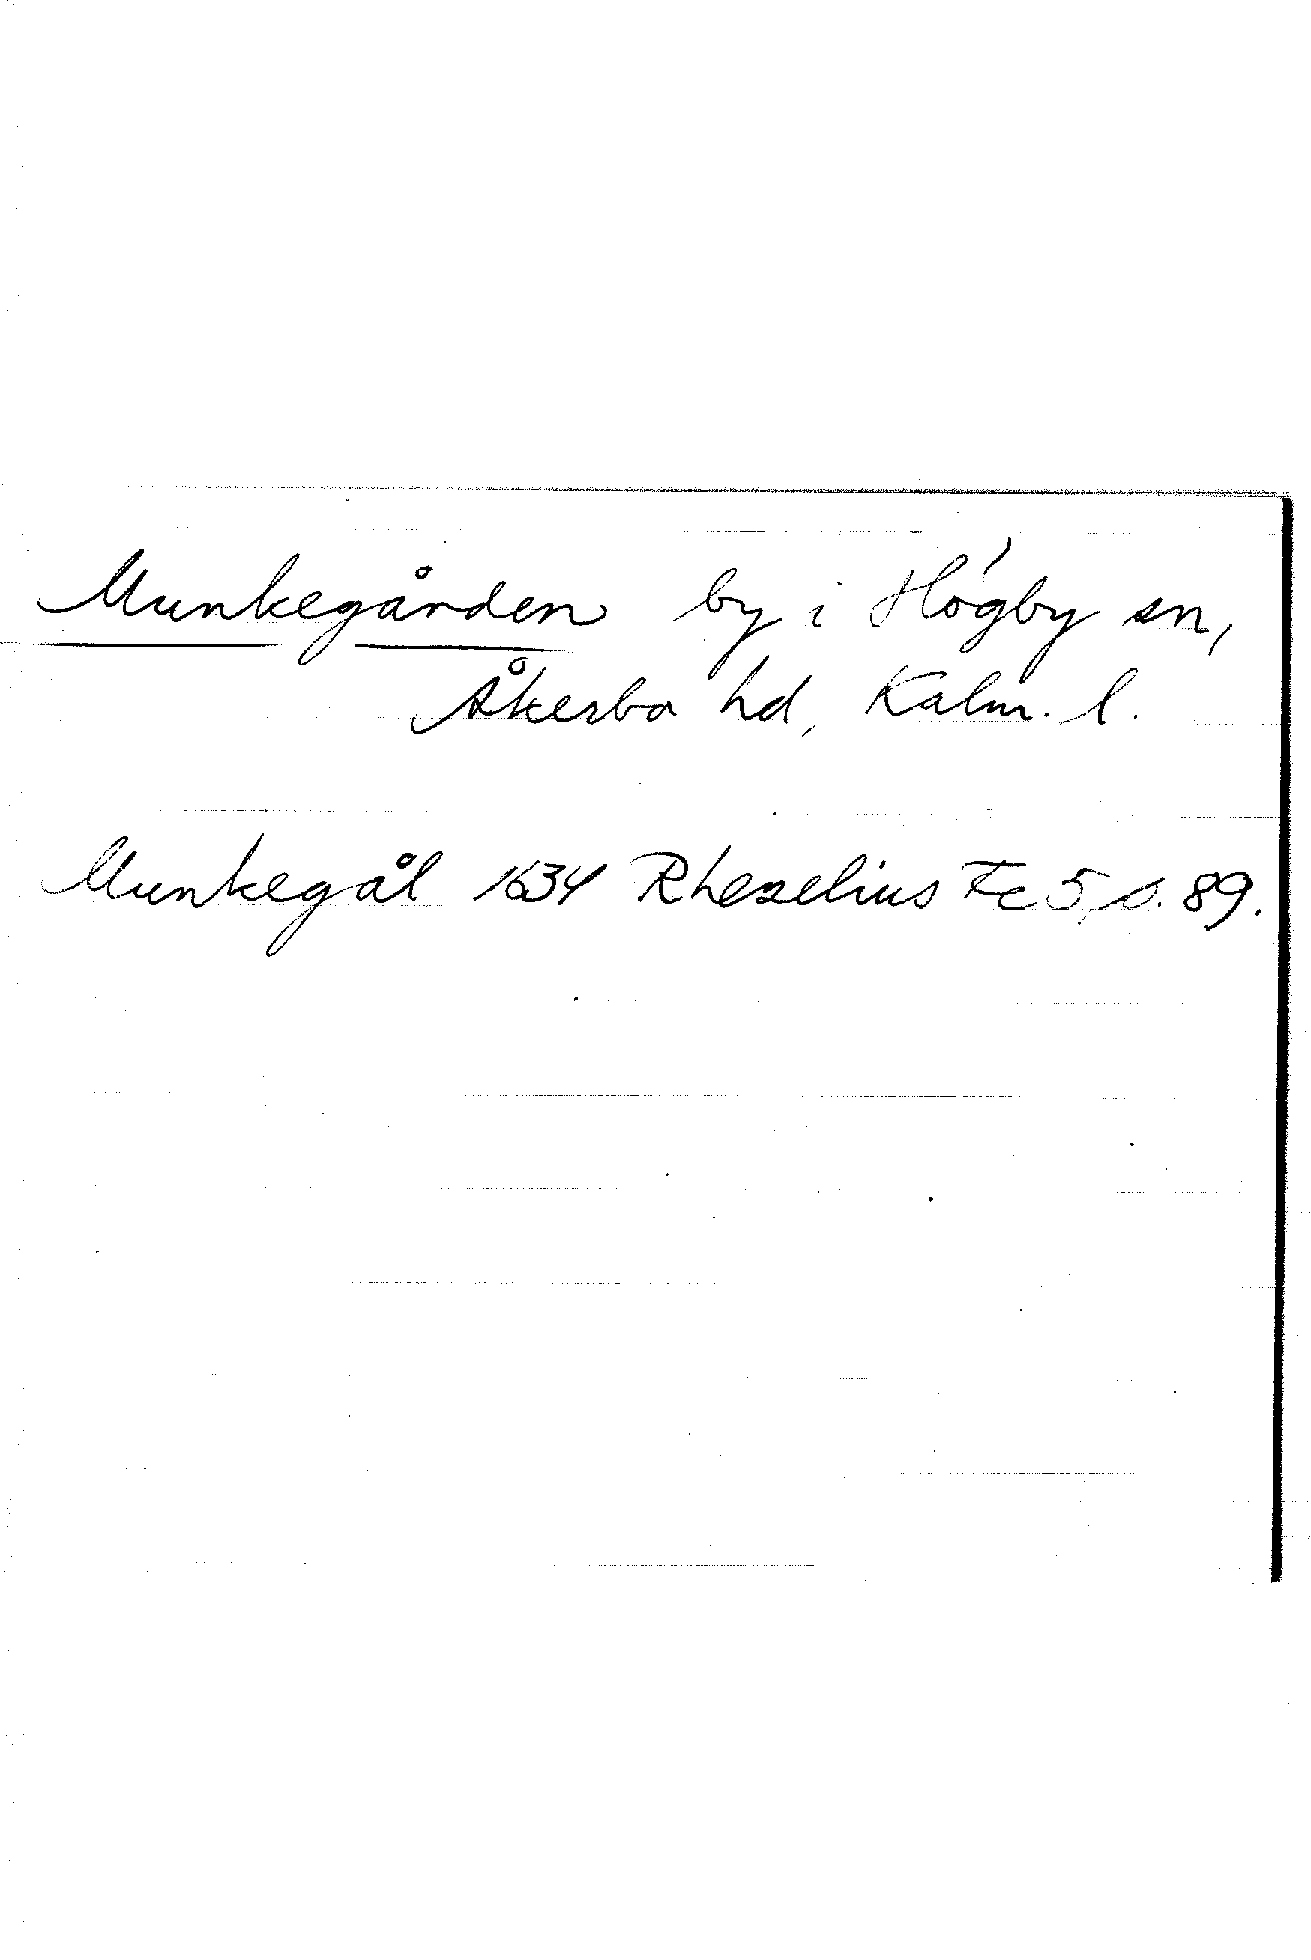 Munkegården by i Högby sn,
Åkerbo hd, Kalm. l.
Munkegål 1634 Rhezelius Fc 5, s. 89.